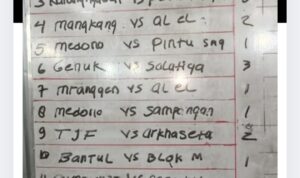 4 mangkang vs al el. 2
5 medono vs Pintu sng 1
6 Genuk vs Salatiga 3
7 mranggen vs al el 1
8 medono vs Sampangan 1
9 TJF vs Arkhaseta 2
10 Bantul vs Blok M 1